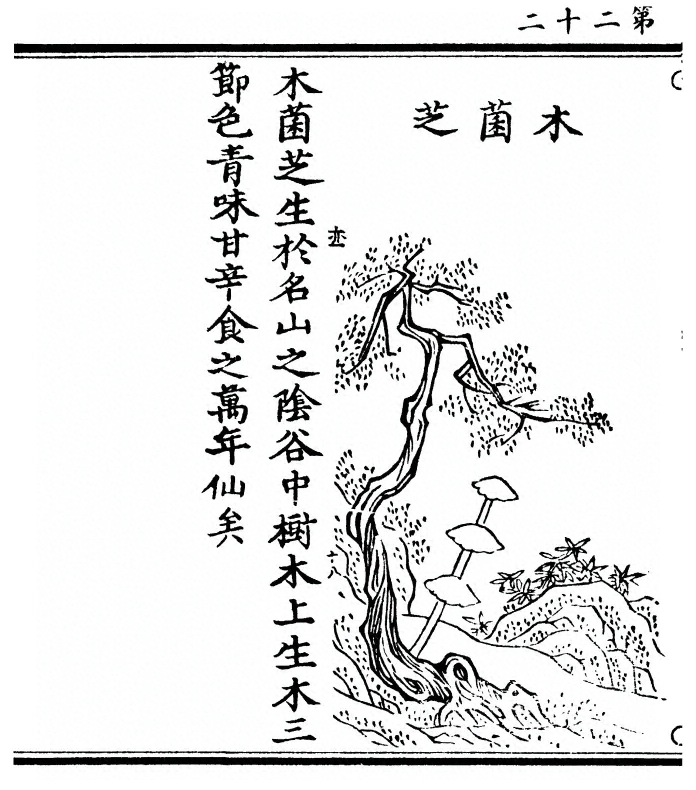 第二十二
木菌芝
木菌芝生於名山之陰谷中樹木上生木三
節色青味甘辛食之萬年仙矣
十八